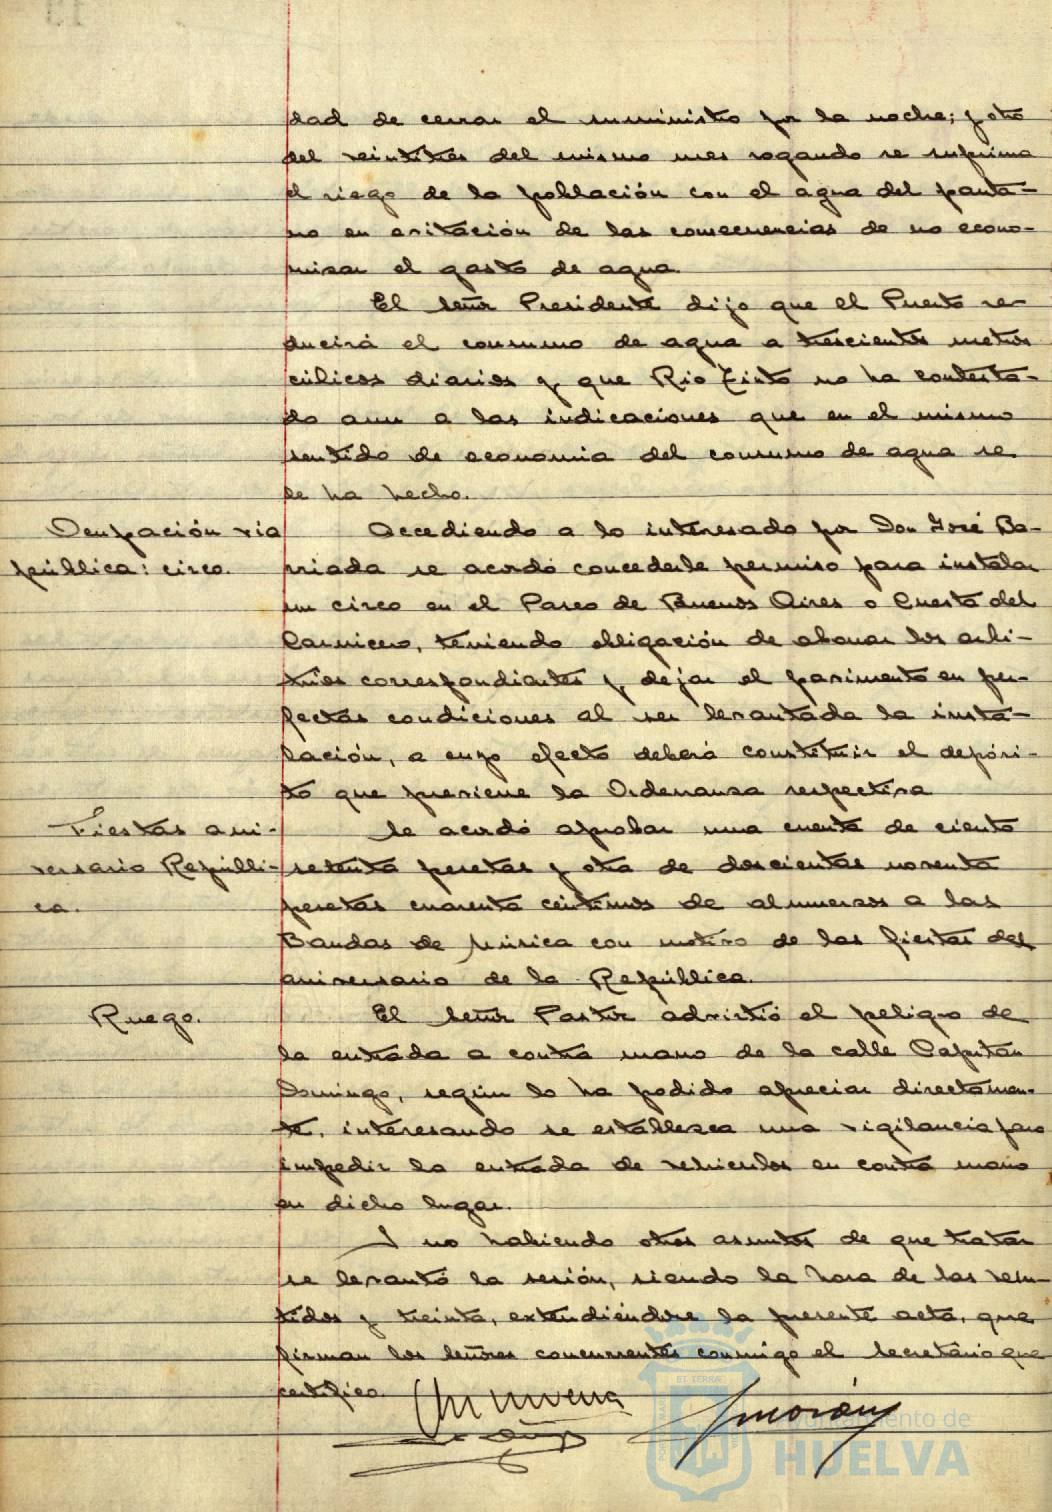 dad de cerrar el suministro por la noche; y otro
del veintitres del mismo mes rogando se suprima
el riego de la población con el agua del panta-
no en evitación de las consecuencias de no econo-
mizar el gasto de agua.
El señor Presidente dijo que el Puerto re-
ducirá el consumo de agua a trescientos metros
cúbicos diarios y que Rio Tinto no ha contesta-
do aun a las indicaciones que en el mismo
sentido de economia del consumo de agua se
le ha hecho.
Ocupación via
pública: circo.
Accediendo a lo interesado por Don José Ba-
rriada se acordó concederle permiso para instalar
un circo en el Paseo de Buenos Aires o Cuesta del
Carnicero, teniendo obligación de abonar los arbi-
trios correspondientes y dejar el pavimento en per-
fectas condiciones al ser levantada la insta-
lación, a cuyo efecto deberá constituir el depósi-
to que previene la Ordenanza respectiva
Fiestas ani-
versario Repúbli-
ca.
Se acordó aprobar una cuenta de ciento
setenta pesetas y otra de doscientas noventa
pesetas cuarenta céntimos de almuerzos a las
Bandas de Música con motivo de las fiestas del
aniversario de la República.
Ruego.
El señor Pastor advirtió el peligro de
la entrada a contra mano de la calle Capitán
Domingo, según lo ha podido apreciar directamen-
te, interesando se establezca una vigilancia para
impedir la entrada de vehiculos en contra mano
en dicho lugar.
I no habiendo otros asuntos de que tratar
se levantó la sesión, siendo la hora de las vein-
tidos y treinta, extendiéndose la presente acta, que
firman los señores concurrentes conmigo el Secretario que
certifico.
Ayuntamiento de
HUELVA